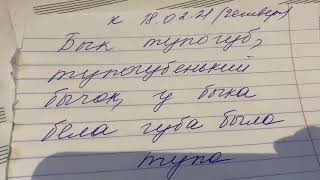 к 18.02.21 (четверг)
Бык тупогуб,
тупогубенький
бычок, у быка
бела губа была
тупа